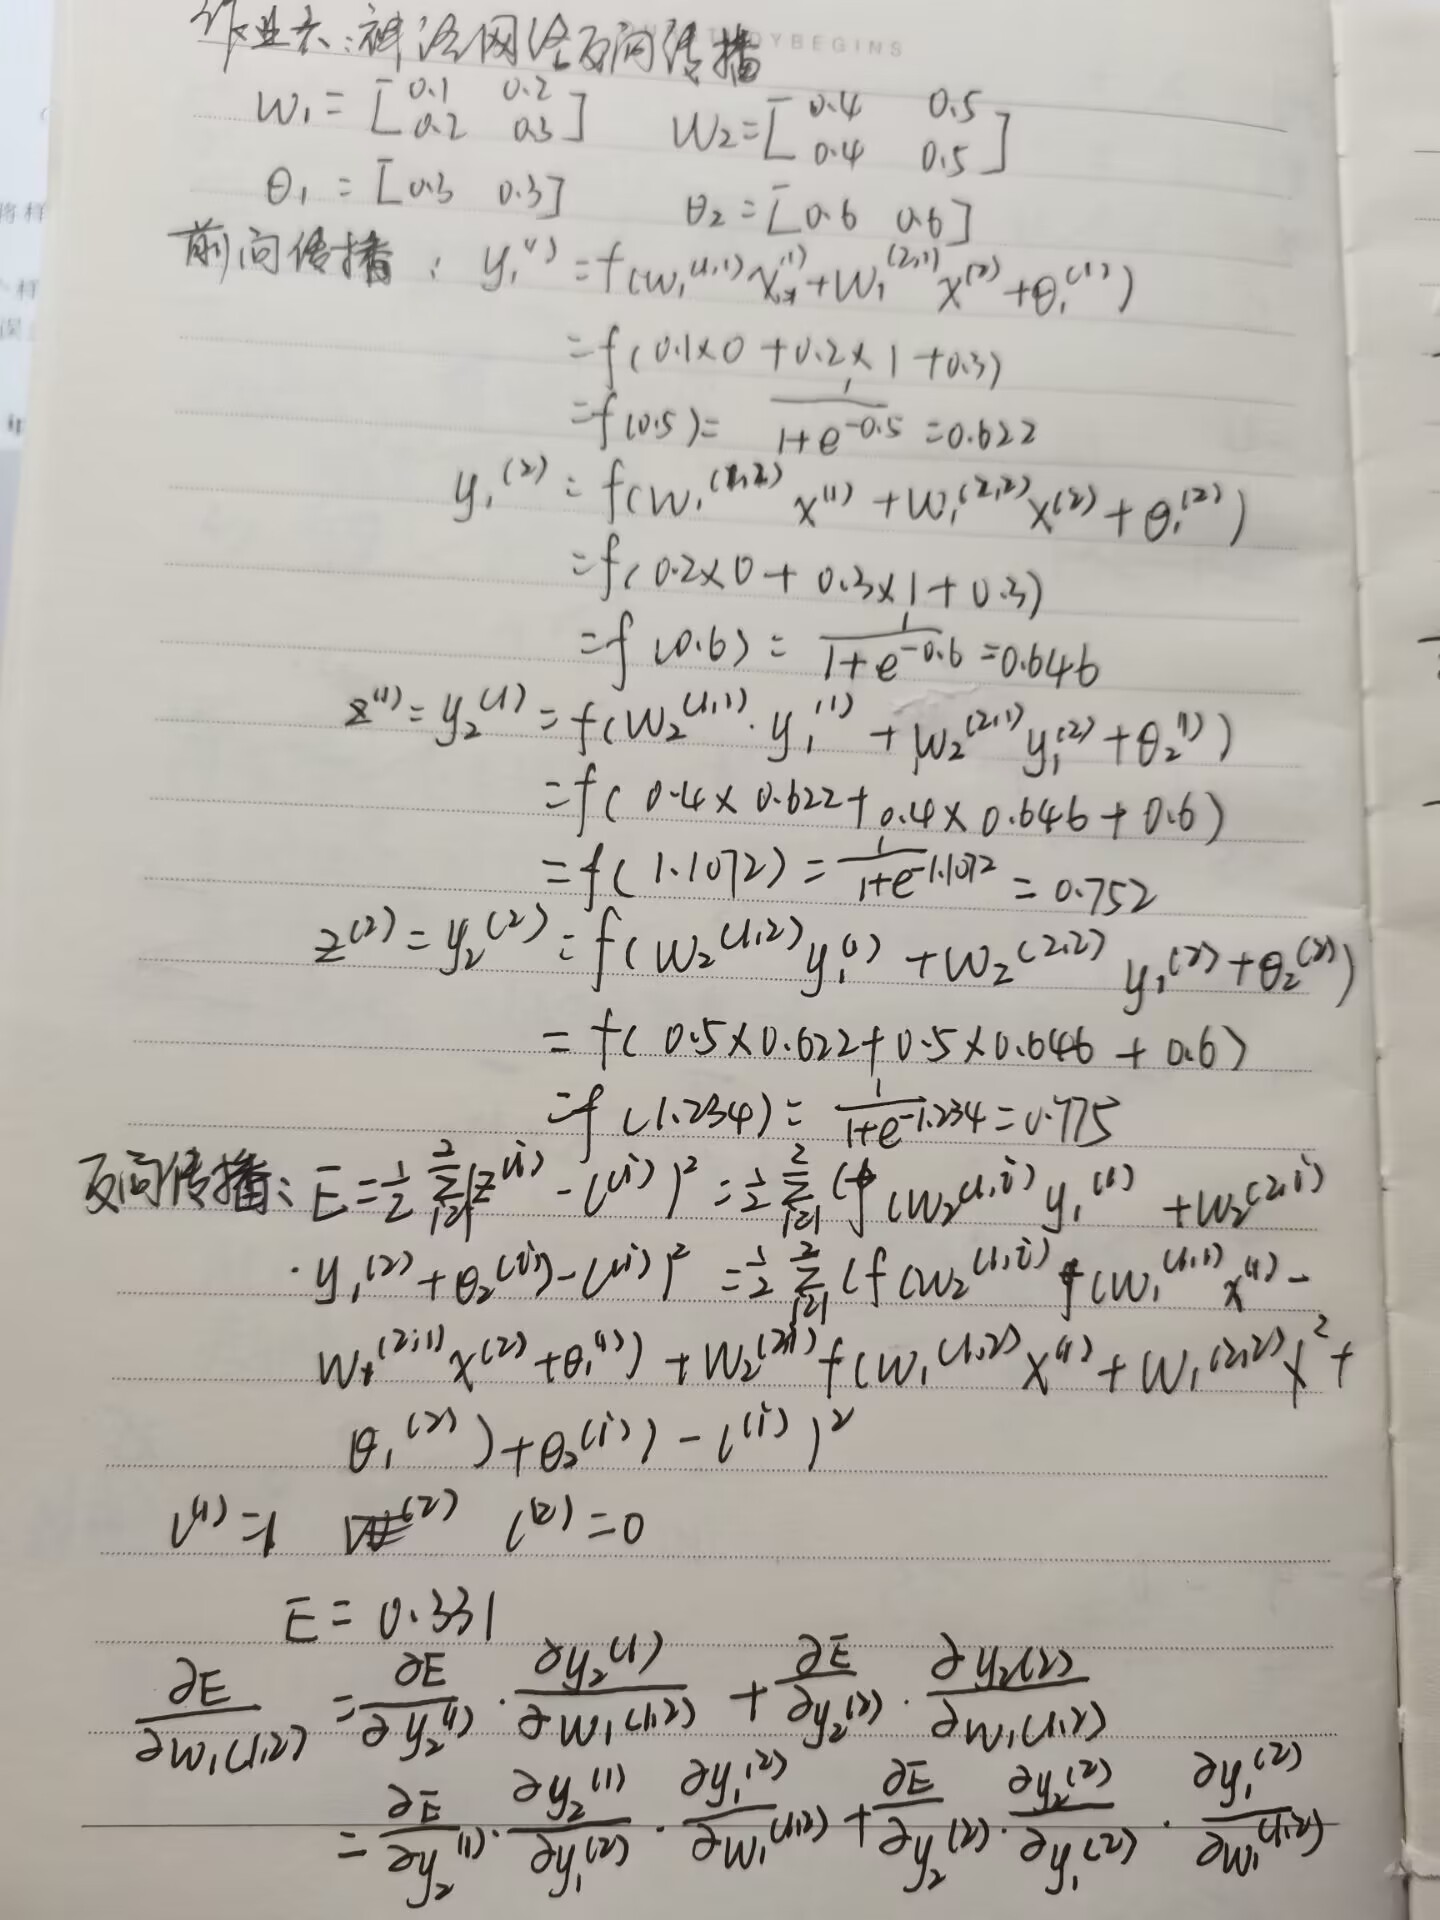 作业六:神经网络反向传播
YBEGINS
W₁ = [0.1 0.2
0.2 0.3]
W₂ = [0.4 0.5
0.4 0.5]
θ₁ = [0.3 0.3] θ₂ = [0.6 0.6]
前向传播: y₁⁽¹⁾ = f(w₁⁽¹,¹⁾x⁽¹⁾ + W₁⁽²,¹⁾x⁽²⁾ + θ₁⁽¹⁾)
= f(0.1×0 + 0.2×1 + 0.3)
= f(0.5) = 1/(1+e^-0.5) = 0.622
y₁⁽²⁾ = f(w₁⁽¹,²⁾x⁽¹⁾ + W₁⁽²,²⁾x⁽²⁾ + θ₁⁽²⁾)
= f(0.2×0 + 0.3×1 + 0.3)
= f(0.6) = 1/(1+e^-0.6) = 0.646
z⁽¹⁾ = y₂⁽¹⁾ = f(W₂⁽¹,¹⁾·y₁⁽¹⁾ + W₂⁽²,¹⁾y₁⁽²⁾ + θ₂⁽¹⁾)
= f(0.4×0.622 + 0.4×0.646 + 0.6)
= f(1.1072) = 1/(1+e^-1.1072) = 0.752
z⁽²⁾ = y₂⁽²⁾ = f(W₂⁽¹,²⁾y₁⁽¹⁾ + W₂⁽²,²⁾y₁⁽²⁾ + θ₂⁽²⁾)
= f(0.5×0.622 + 0.5×0.646 + 0.6)
= f(1.234) = 1/(1+e^-1.234) = 0.775
反向传播: E = 1/2 Σ(z⁽ⁱ⁾ - l⁽ⁱ⁾)² = 1/2 Σ(f(W₂⁽¹,ⁱ⁾y₁⁽¹⁾ + W₂⁽²,ⁱ⁾
·y₁⁽²⁾ + θ₂⁽ⁱ⁾) - l⁽ⁱ⁾)² = 1/2 Σ(f(W₂⁽¹,ⁱ⁾f(W₁⁽¹,¹⁾x⁽¹⁾ -
W₁⁽²,¹⁾x⁽²⁾ + θ₁⁽¹⁾) + W₂⁽²,ⁱ⁾f(W₁⁽¹,²⁾x⁽¹⁾ + W₁⁽²,²⁾x² +
θ₁⁽²⁾) + θ₂⁽ⁱ⁾) - l⁽ⁱ⁾)²
l⁽¹⁾ = 1 l⁽²⁾ = 0
E = 0.331
∂E/∂W₁(1,2) = ∂E/∂y₂⁽¹⁾ · ∂y₂⁽¹⁾/∂W₁(1,2) + ∂E/∂y₂⁽²⁾ · ∂y₂(2)/∂W₁(1,2)
= ∂E/∂y₂⁽¹⁾ · ∂y₂⁽¹⁾/∂y₁⁽²⁾ · ∂y₁⁽²⁾/∂W₁⁽¹,²⁾ + ∂E/∂y₂⁽²⁾ · ∂y₂⁽²⁾/∂y₁⁽²⁾ · ∂y₁⁽²⁾/∂W₁⁽¹,²⁾